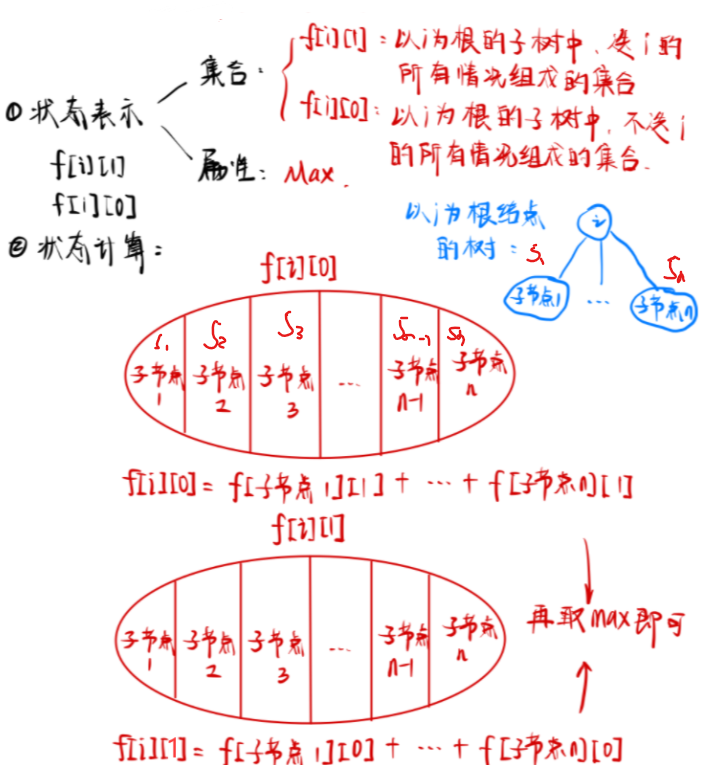 ①状态表示
f[i][1]
f[i][0]
集合：
f[i][1]：以i为根的子树中，选i的
所有情况组成的集合
f[i][0]：以i为根的子树中，不选i
的所有情况组成的集合.
属性：Max.
②状态计算：
以i为根结点
的树：
i
S1
Sn
子节点1
...
子节点n
f[i][0]
S1 S2 S3 Sn-1 Sn
子节点1 子节点2 子节点3 ... 子节点n-1 子节点n
f[i][0] = f[子节点1][1] + ... + f[子节点n][1]
f[i][1]
子节点1 子节点2 子节点3 ... 子节点n-1 子节点n
再取max即可
f[i][1] = f[子节点1][0] + ... + f[子节点n][0]